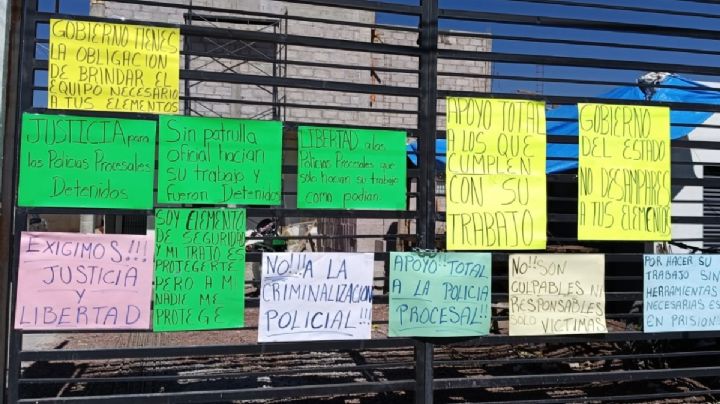 GOBIERNO TIENES
LA OBLIGACION
DE BRINDAR EL
EQUIPO NECESARIO
A TUS ELEMENTOS
JUSTICIA para
las Policias Procesales
Detenidos
Sin patrulla
oficial hacían
su trabajo y
fueron Detenidos
LIBERTAD a los
Policías Procesales que
solo hacian su trabajo
como podían.
APOYO TOTAL
A LOS QUE
CUMPLEN
CON SU
TRABAJO
GOBIERNO
DEL ESTADO
NO DESAMPARES
A TUS ELEMENTOS
EXIGIMOS!!!
JUSTICIA
Y
LIBERTAD
SOY ELEMENTO
DE SEGURIDAD
Y MI TRATO ES
PROTEGERTE
PERO A MI
NADIE ME
PROTEGE
NO!!! A LA
CRIMINALIZACION
POLICIAL!!!
APOYO!! TOTAL
A LA POLICIA
PROCESAL!!
NO!! SON
CULPABLES NI
RESPONSABLES
SOLO VICTIMAS
POR HACER SU
TRABAJO SIN
HERRAMIENTAS
NECESARIAS ES
EN PRISION